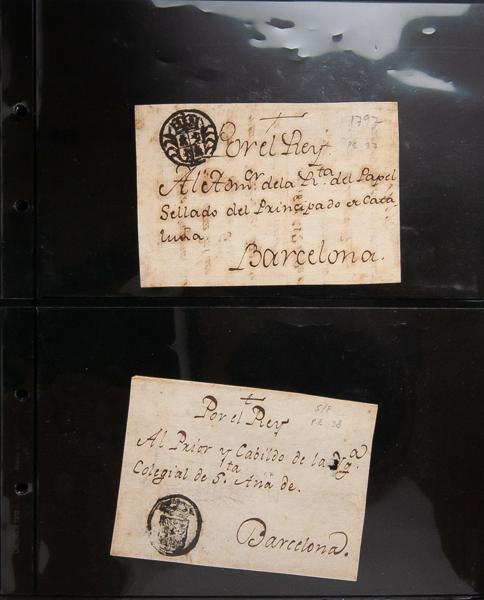 1797
P.E. 37
Por el Rey
Al Adm.or de la R.ta del Papel
Sellado del Principado de Cata
luña.
Barcelona.
Por el Rey
S/F
P.E. 38
Al Prior y Cabildo de la Ygª.
Colegial de S.ta Ana de.
Barcelona.